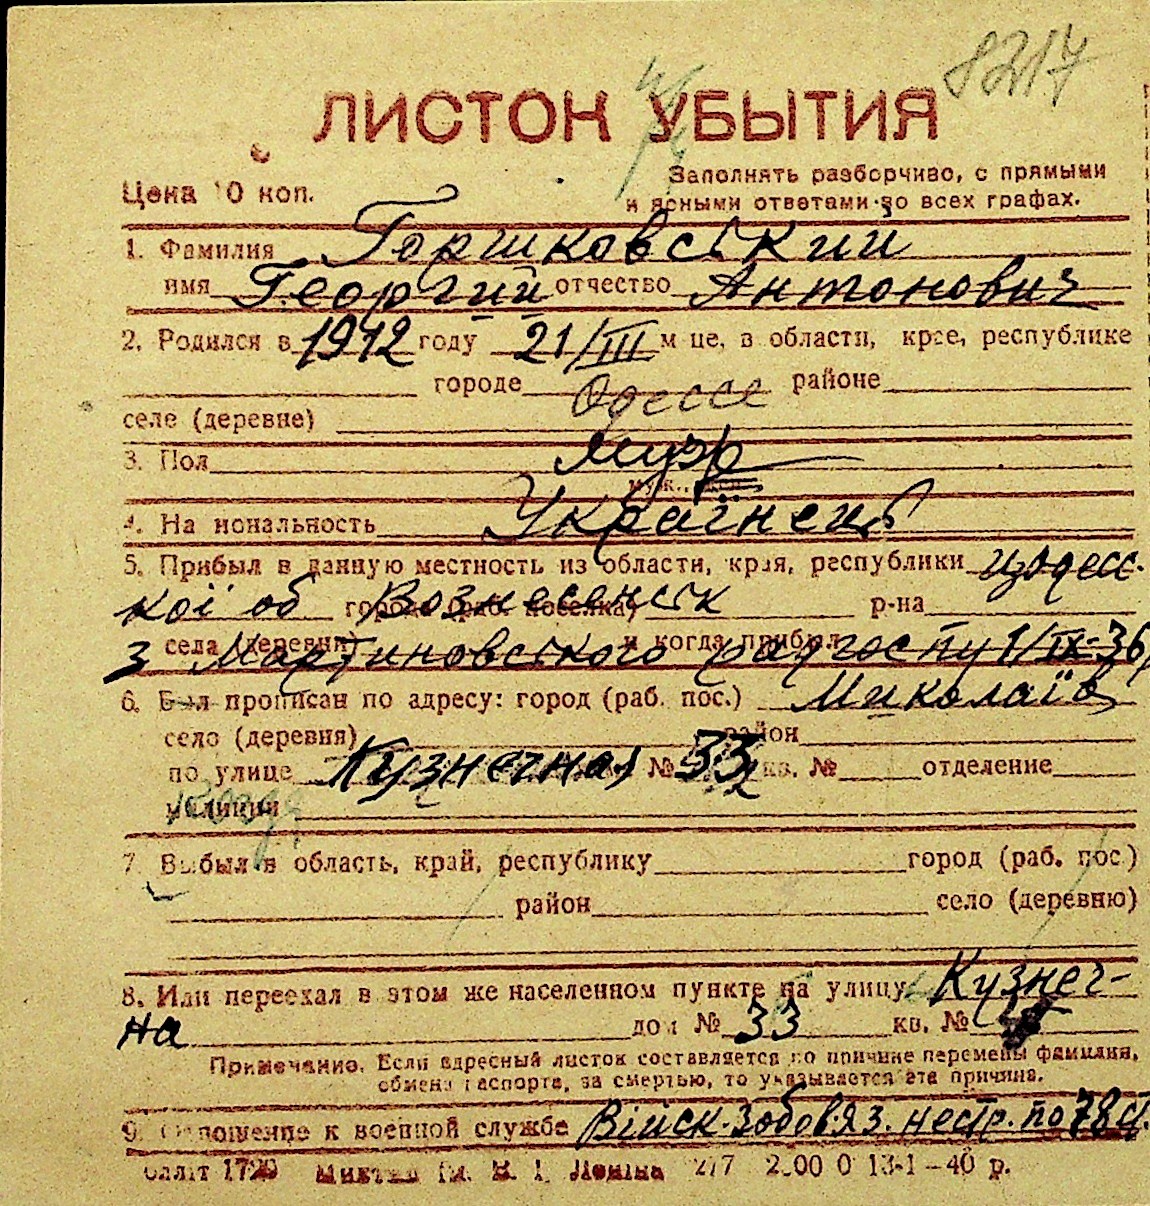 8217
ЛИСТОК УБЫТИЯ
Цена 10 коп.
Заполнять разборчиво, с прямыми
и ясными ответами во всех графах.
1. Фамилия Горшковський
имя Георгий отчество Антонович
2. Родился в 1912 году 21/III м-це, в области, крае, республике
городе Одессе районе
селе (деревне)
3. Пол муж
муж., жен.
4. На иональность Українець
5. Прибыл в данную местность из области, края, республики з Одесс-
кої об города (раб. поселка) Вознесенськ р-на
з села (деревни) Мартиновського радгоспу и когда прибыл 1/IX-36
6. Был прописан по адресу: город (раб. пос.) Миколаїв
село (деревня) район
по улице Кузнечная № 33 кв. № отделение
милиции
7. Выбыл в область, край, республику город (раб. пос.)
район село (деревню)
8. Или переехал в этом же населенном пункте на улицу Кузнеч-
на дом № 33 кв. №
Примечание. Если адресный листок составляется по причине перемены фамилия,
обмена паспорта, за смертью, то указывается эта причина.
9. Отношение к военной службе Військ.зобовяз. нестр. по 78 ст.
1720 В. І. Леніна 217 13-1-40 р.